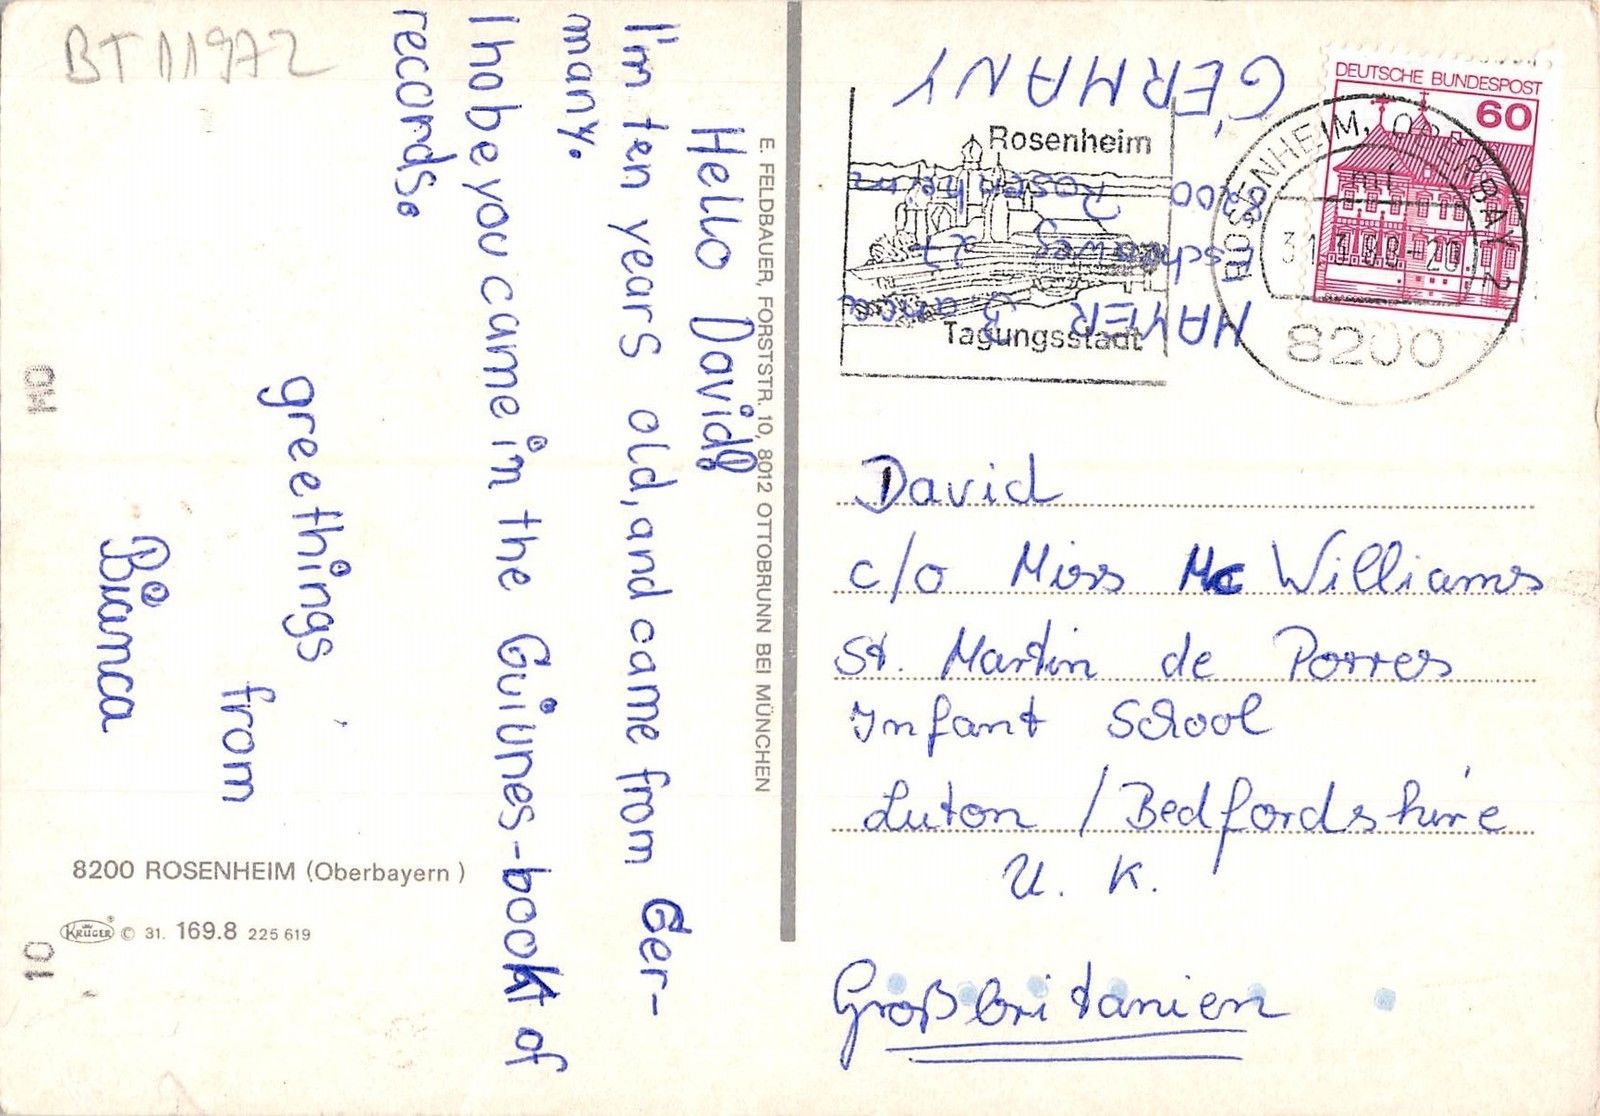 BT 11972
Hello David!
I'm ten years old, and came from Ger-
many.
I hobe you came in the Guiunes-bookt of
records.
greethings
from
Bianca
8200 ROSENHEIM (Oberbayern)
KRÜGER © 31. 169.8 225 619
10
E. FELDBAUER, FORSTSTR. 10, 8012 OTTOBRUNN BEI MÜNCHEN
MAYER Bianca
27
8200 Rosenheim
GERMANY
Rosenheim
Tagungsstadt
DEUTSCHE BUNDESPOST
60
ROSENHEIM, OBERBAY 2
mf
31.3.88-20
8200
David
c/o Miss Mc Williams
St. Martin de Porres
Infant School
Luton / Bedfordshire
U. K.
Großbritanien